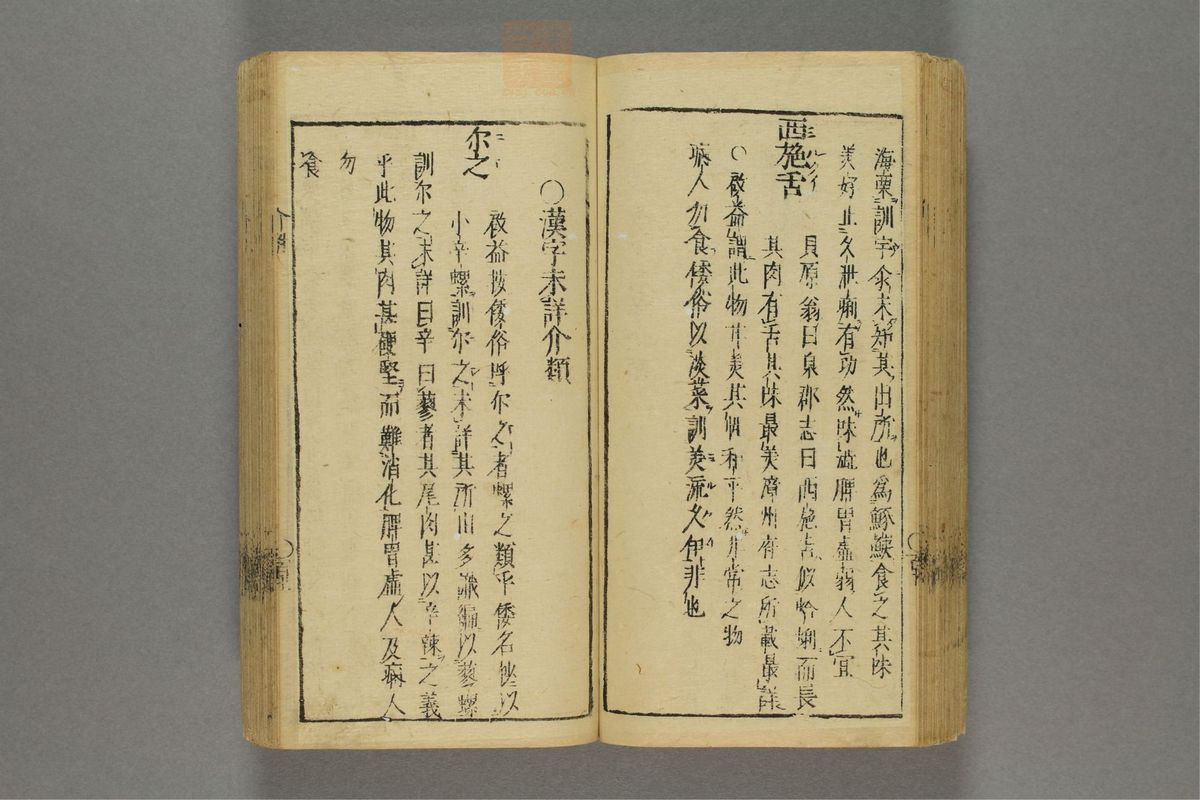 海栗訓字余未知其出所也為豚鮧食之其味
美好止久泄痢有功然味澁脾胃虚弱人不宜
西施舌
貝原翁曰泉郡志曰西施舌似蛤蜊而長
其肉有舌其味最美漳州有志所載最詳
○啟益謂此物甘美其性和平然非常之物
病人勿食倭俗以淡菜訓美流久伊非也
○漢字未詳介類
尓之
啟益按倭俗呼尓之者螺之類乎倭名抄以
小辛螺訓尓之未詳其所由多識編以蓼螺
訓尓之未詳曰辛曰蓼者其尾肉甚以辛辣之義
乎此物其肉甚硬堅而難消化脾胃虚人及病人
勿
食